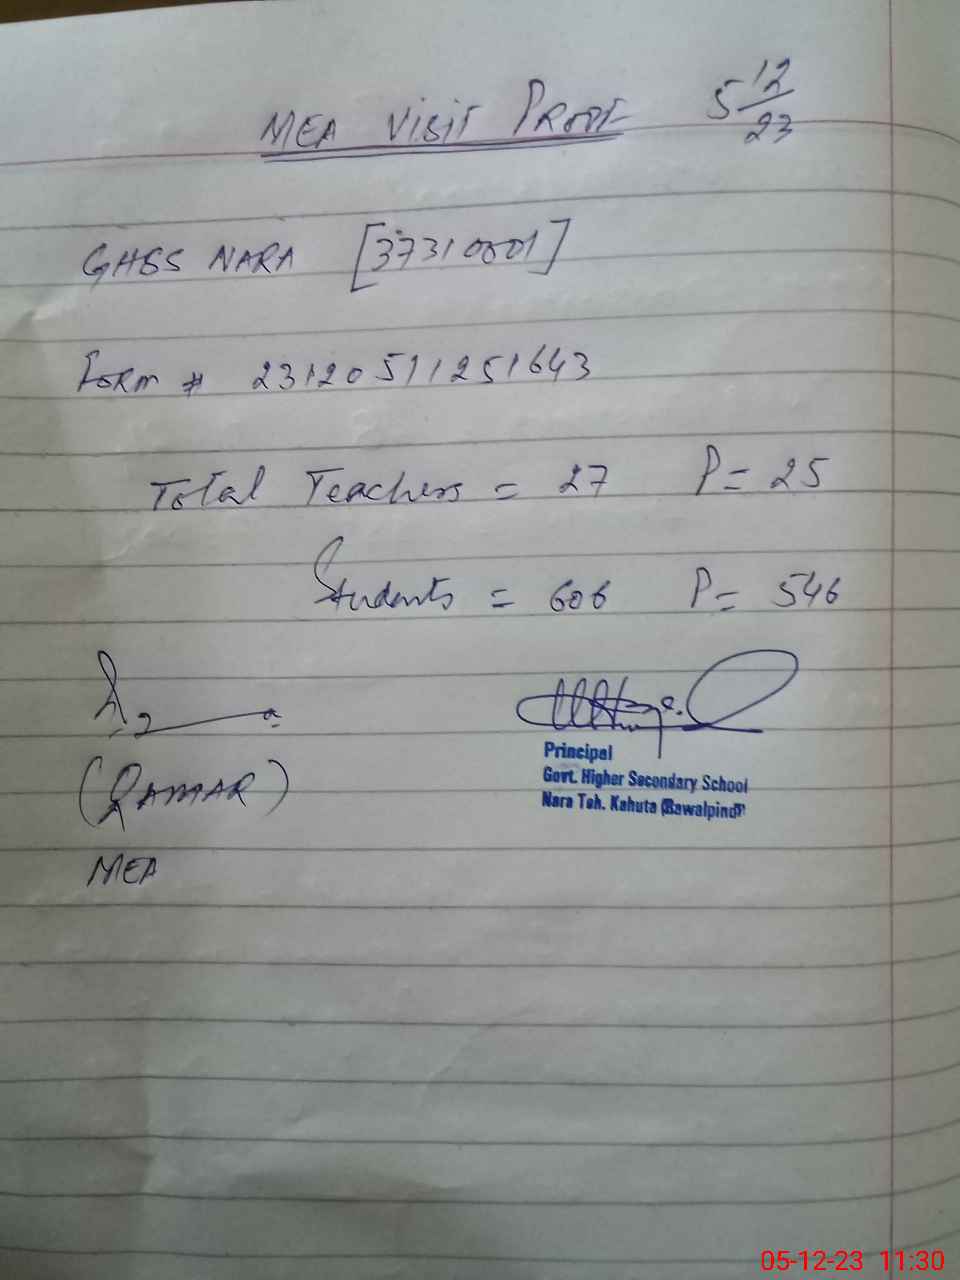 MEA Visit Proof 5 12/23
GHSS NARA [37310001]
Form # 23120511251643
Total Teachers = 27 P= 25
Students = 606 P= 546
(QAMAR)
MEA
Principal
Govt. Higher Secondary School
Nara Teh. Kahuta (Rawalpindi)
05-12-23 11:30